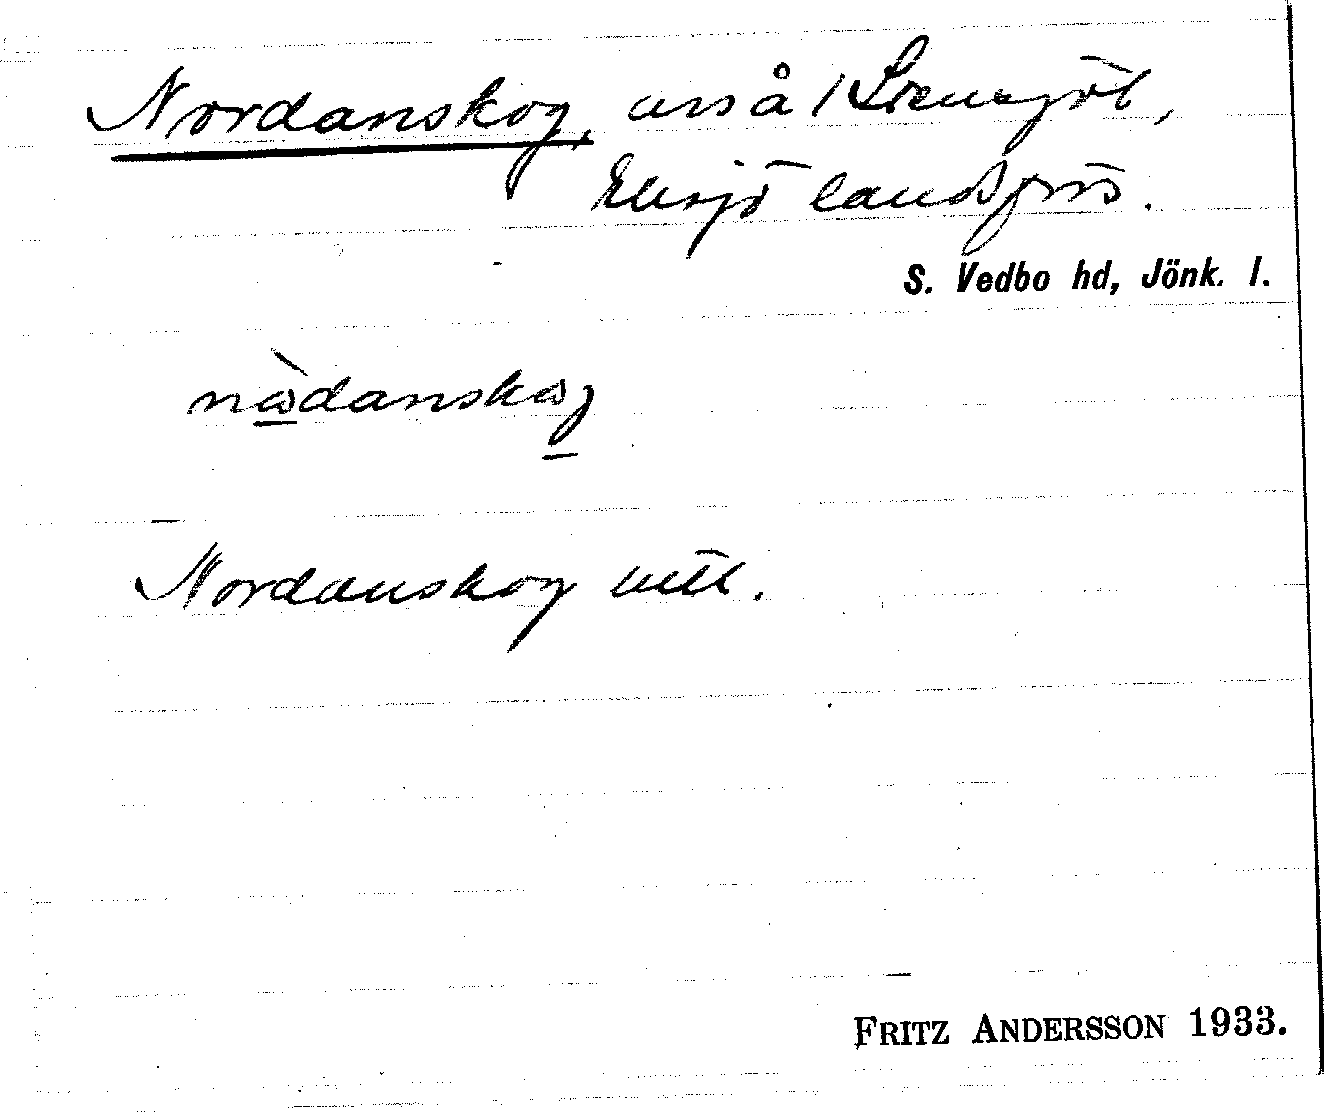 Nordanskog, urs å 1 Stensjöt,
Eksjö landsförs.
S. Vedbo hd, Jönk. l.
nωdanskωg
Nordanskog
FRITZ ANDERSSON 1933.